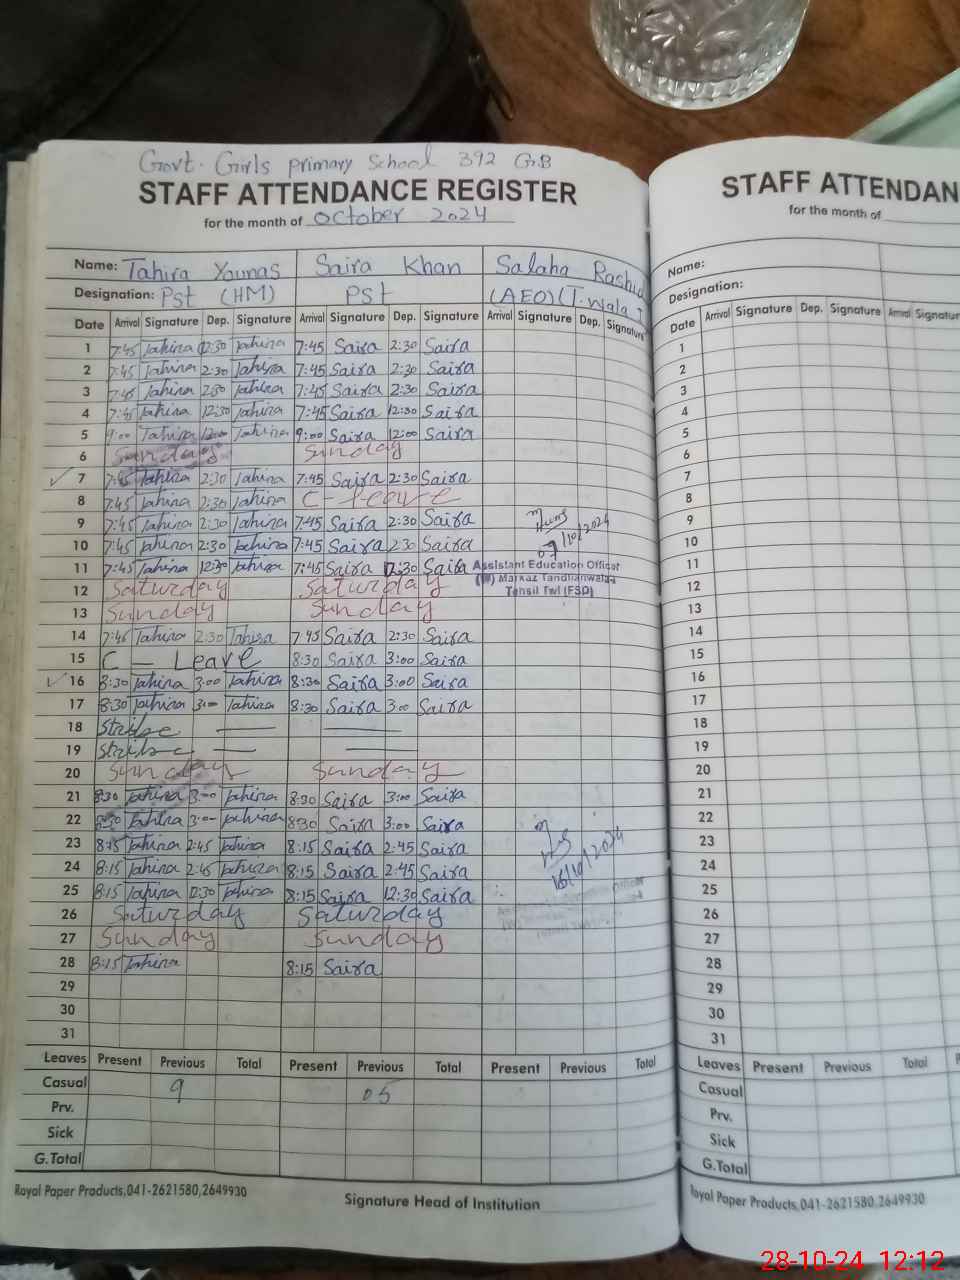 Govt. Girls primary School 392 GB
STAFF ATTENDANCE REGISTER
for the month of October 2024
Name: Tahira Younas Saira Khan Salaha Rashid
Designation: Pst (HM) PSt (AEO) (T.wala
Date Arrival Signature Dep. Signature Arrival Signature Dep. Signature Arrival Signature Dep. Signature
1 7:45 Tahira 12:30 Tahira 7:45 Saira 2:30 Saira
2 7:45 Tahira 2:30 Tahira 7:45 Saira 2:30 Saira
3 7:45 Tahira 2:30 Tahira 7:45 Saira 2:30 Saira
4 7:45 Tahira 12:30 Tahira 7:45 Saira 12:30 Saira
5 9:00 Tahira 12:00 Tahira 9:00 Saira 12:00 Saira
6 Sunday Sunday
7 7:45 Tahira 2:30 Tahira 7:45 Saira 2:30 Saira
8 7:45 Tahira 2:30 Tahira C - Leave
9 7:45 Tahira 2:30 Tahira 7:45 Saira 2:30 Saira
10 7:45 Tahira 2:30 Tahira 7:45 Saira 2:30 Saira
11 7:45 Tahira 12:30 Tahira 7:45 Saira 12:30 Saira
12 Saturday Saturday
13 Sunday Sunday
14 7:45 Tahira 2:30 Tahira 7:45 Saira 2:30 Saira
15 C - Leave 8:30 Saira 3:00 Saira
16 8:30 Tahira 3:00 Tahira 8:30 Saira 3:00 Saira
17 8:30 Tahira 3:00 Tahira 8:30 Saira 3:00 Saira
18 Stribe
19 Stribe
20 Sunday Sunday
21 8:30 Tahira 3:00 Tahira 8:30 Saira 3:00 Saira
22 8:30 Tahira 3:00 Tahira 8:30 Saira 3:00 Saira
23 8:15 Tahira 2:45 Tahira 8:15 Saira 2:45 Saira
24 8:15 Tahira 2:45 Tahira 8:15 Saira 2:45 Saira
25 8:15 Tahira 12:30 Tahira 8:15 Saira 12:30 Saira
26 Saturday Saturday
27 Sunday Sunday
28 8:15 Tahira 8:15 Saira
29
30
31
Leaves Present Previous Total Present Previous Total Present Previous Total
Casual 9 05
Prv.
Sick
G.Total
Royal Paper Products,041-2621580,2649930
Signature Head of Institution
07/10/2024
Assistant Education Officer
(W) Markaz Tandlianwala
Tehsil Twl (FSD)
16/10/2024
STAFF ATTENDAN
for the month of
Name:
Designation:
Date Arrival Signature Dep. Signature Arrival Signatur
1
2
3
4
5
6
7
8
9
10
11
12
13
14
15
16
17
18
19
20
21
22
23
24
25
26
27
28
29
30
31
Leaves Present Previous Total
Casual
Prv.
Sick
G.Total
Royal Paper Products,041-2621580,2649930
28-10-24 12:12